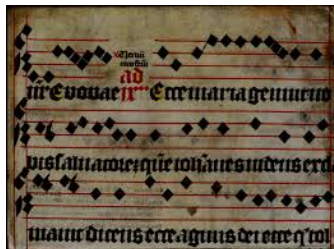 ad
Euouae ix Ecce maria genuit no
bis saluatorē quē iohānes uidens excl
mauit dicens ecce agnus dei ecce q̄ tol